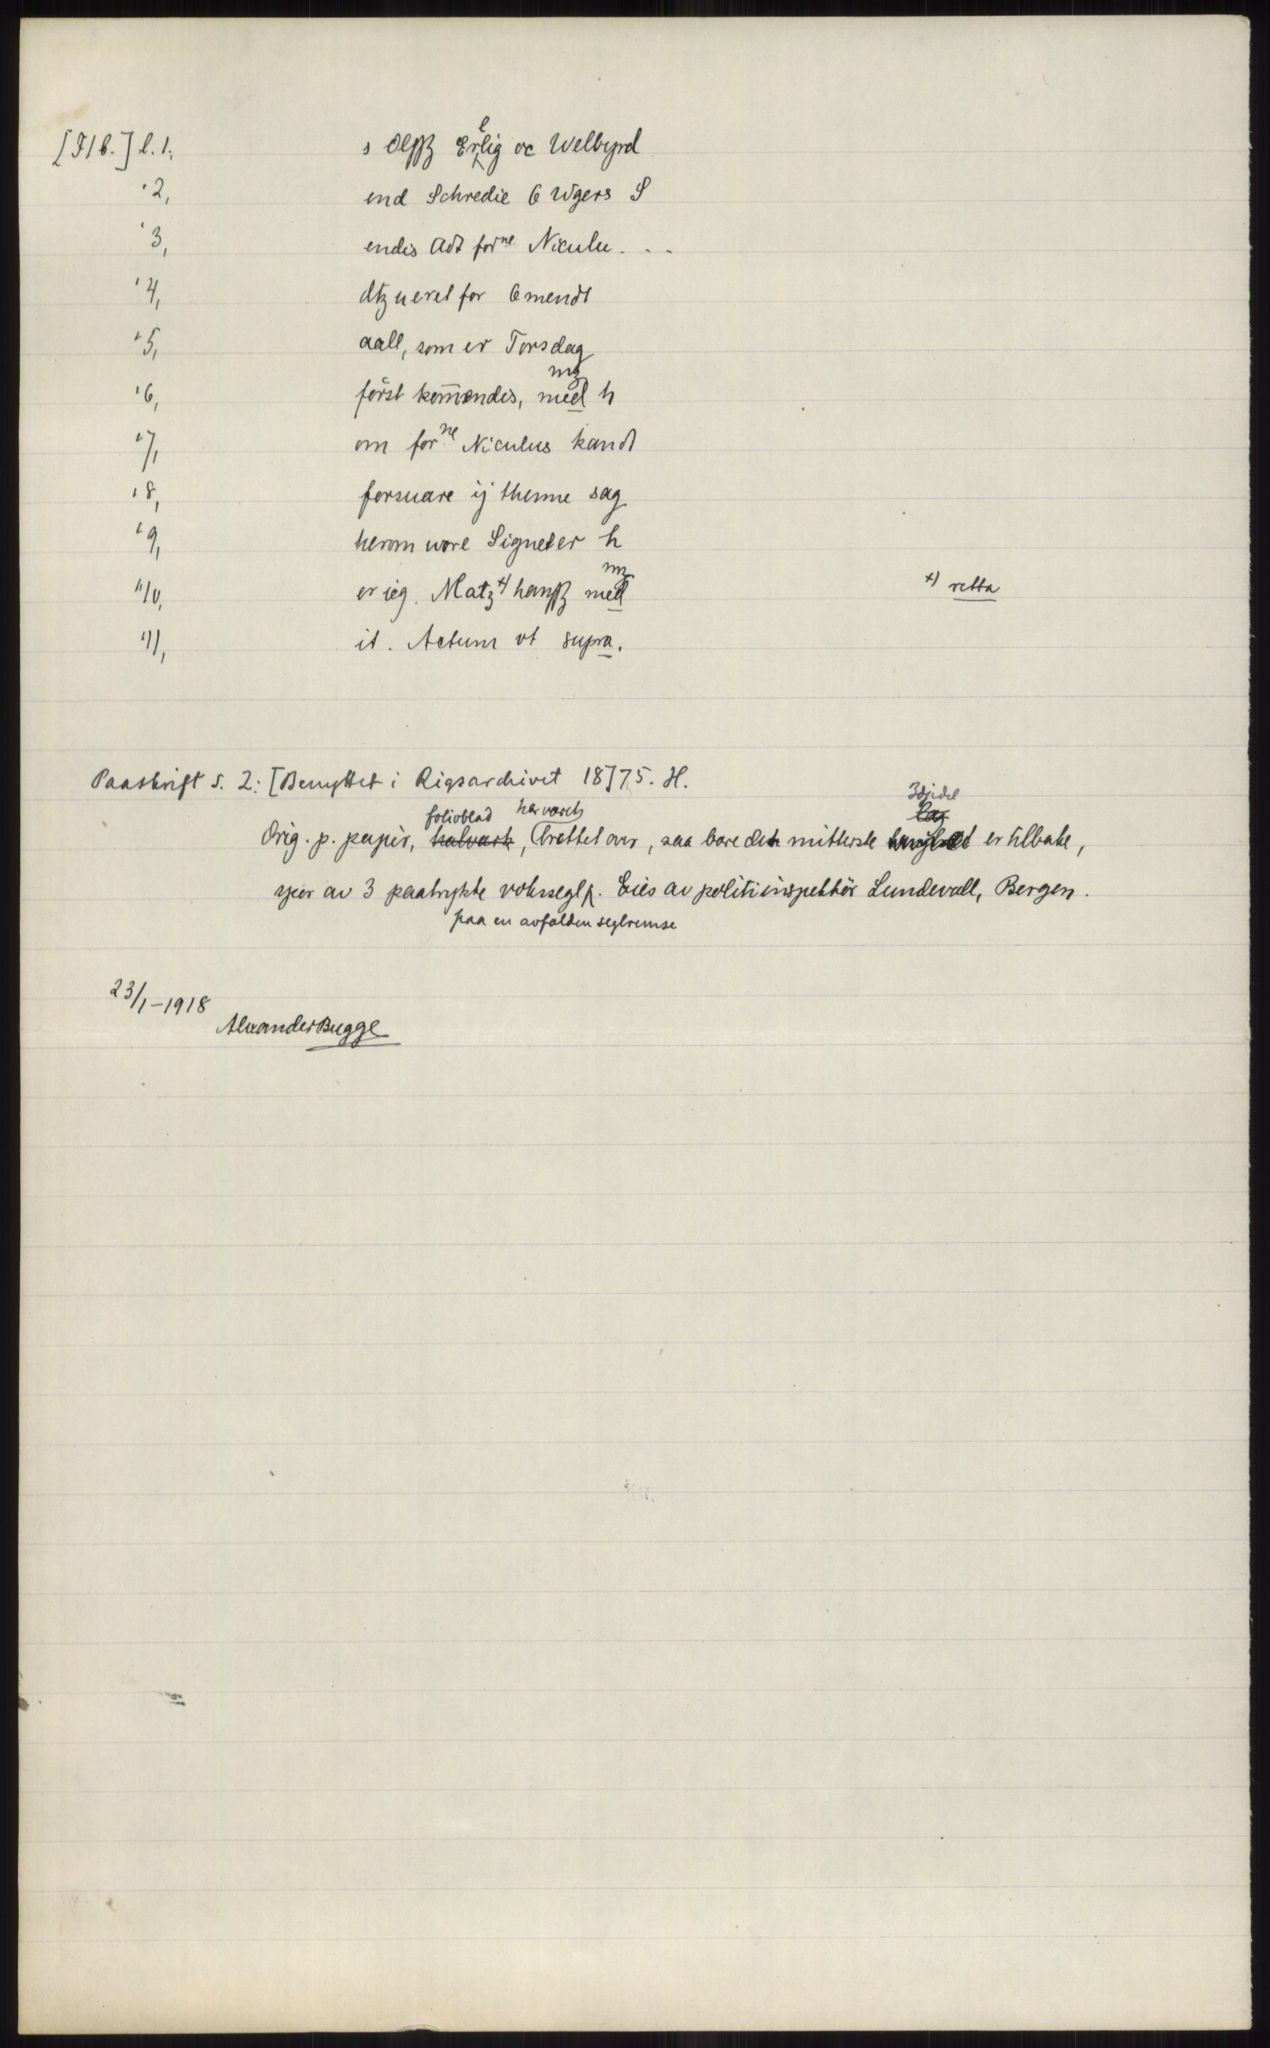 [F16.] l. 1, s Olssz Erlig oc Welbyrd
" 2, end Schredie 6 Wgers S
" 3, endis Adt forne Niculu. . .
" 4, dtz ueret for 6mendt
" 5, aall, som er Torsdag
" 6, först kom̄endis, med mz h
" 7, om forne Niculus kandt
" 8, forsuare ij thenne sag
" 9, herom wore Signeter h
" 10, er ieg. Matz +) hanssz med mz
+) retta
" 11, it. Actum vt supra.
Paaskrift s. 2: [Benyttet i Rigsarchivet 18]75. H.
folioblad
3djedel
Orig. p. papir, halvark, brettet over, saa bare den mitterste er tilbake,
spor av 3 paatrykte vokssegl. Eies av politiinspektör Lundevall, Bergen.
paa en avfalden seglremse
23/1-1918
Alexander Bugge